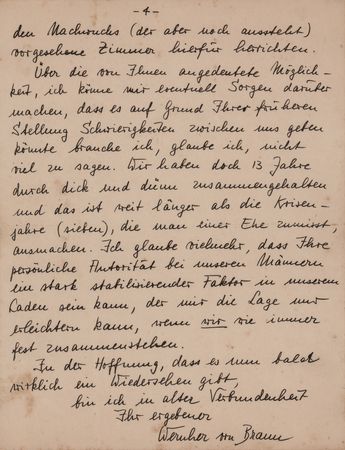 - 4 -
den Nachwuchs (der aber noch aussteht)
vorgesehene Zimmer hierfür herrichten.
Über die von Ihnen angedeutete Möglich-
keit, ich könne mir eventuell Sorgen darüber
machen, dass es auf Grund Ihrer früheren
Stellung Schwierigkeiten zwischen uns geben
könnte brauche ich, glaube ich, nicht
viel zu sagen. Wir haben doch 13 Jahre
durch dick und dünn zusammengehalten
und das ist weit länger als die Krisen-
jahre (sieben), die man einer Ehe zumisst,
ausmachen. Ich glaube vielmehr, dass Ihre
persönliche Autorität bei unseren Männern
ein stark stabilisierender Faktor in unserem
Laden sein kann, der mir die Lage nur
erleichtern kann, wenn wir wie immer
fest zusammenstehen.
In der Hoffnung, dass es nun bald
wirklich ein Wiedersehen gibt,
bin ich in alter Verbundenheit
Ihr ergebener
Wernher von Braun